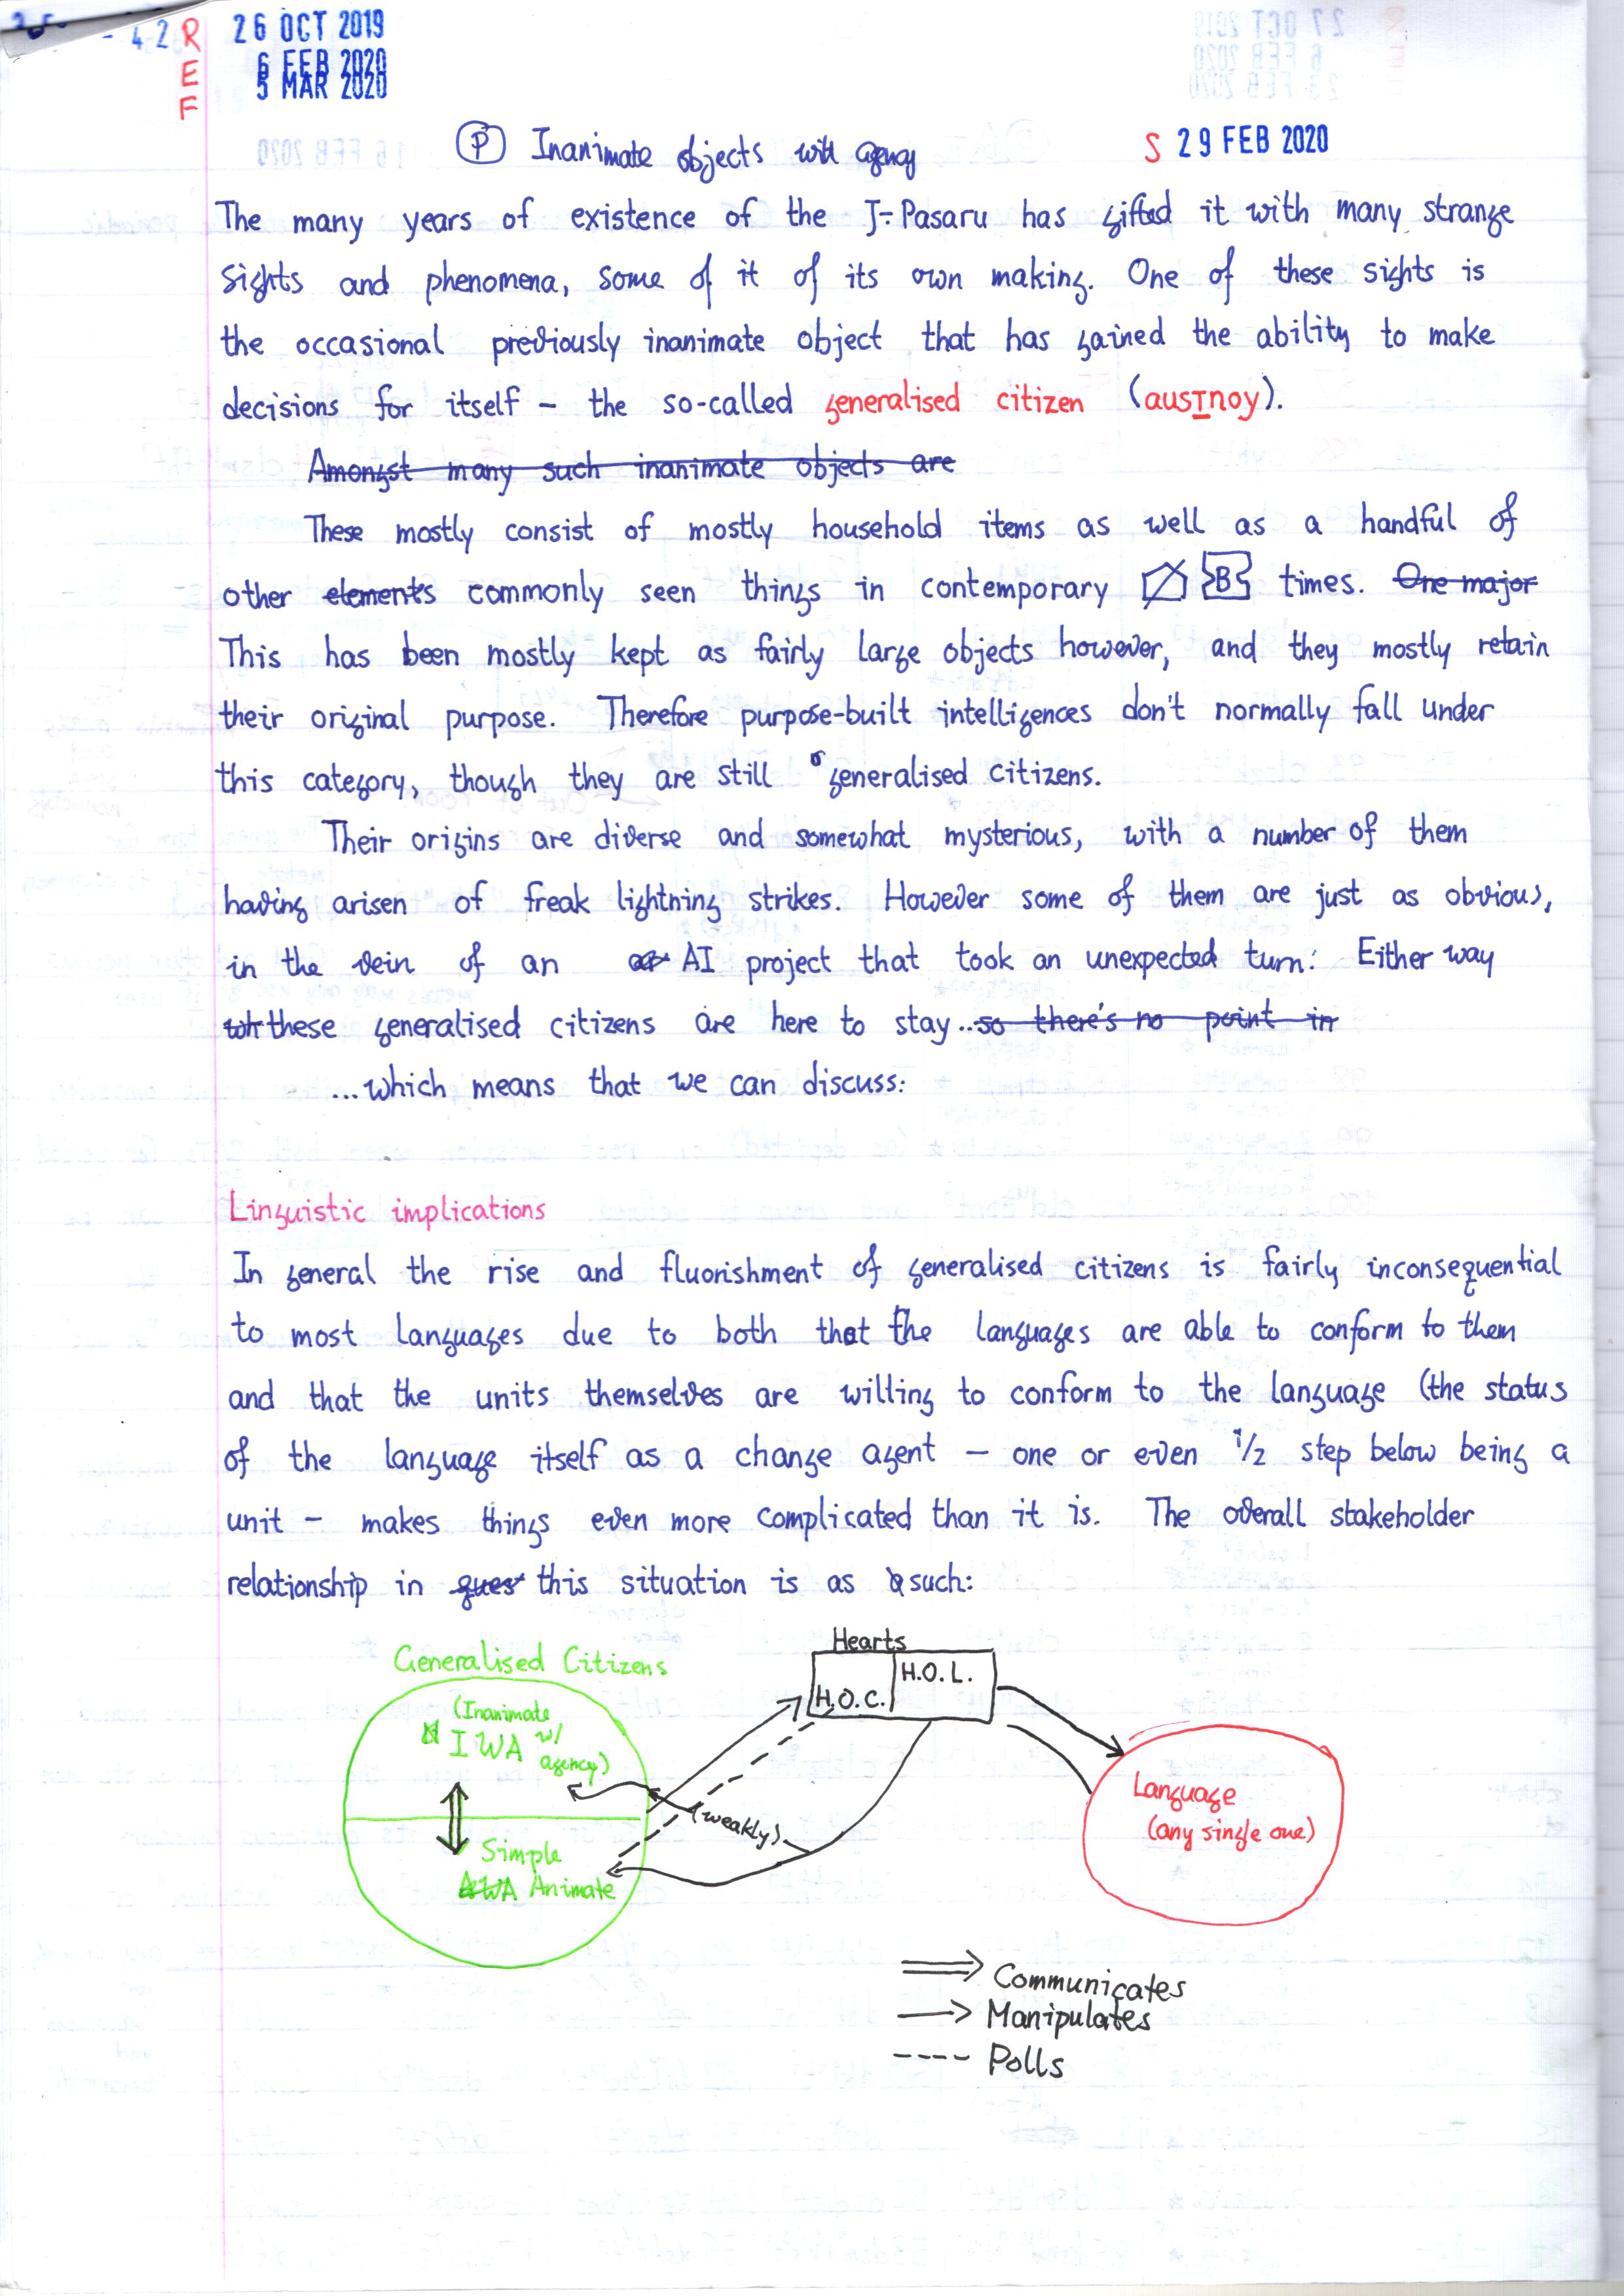 - 42 R 26 OCT 2019
E 6 FEB 2020
F 5 MAR 2020
P Inanimate objects with agency S 29 FEB 2020
The many years of existence of the J-Pasaru has gifted it with many strange
sights and phenomena, some of it of its own making. One of these sights is
the occasional previously inanimate object that has gained the ability to make
decisions for itself – the so-called generalised citizen (ausInoy).
Amongst many such inanimate objects are
These mostly consist of mostly household items as well as a handful of
other elements commonly seen things in contemporary B times. One major
This has been mostly kept as fairly large objects however, and they mostly retain
their original purpose. Therefore purpose-built intelligences don't normally fall under
this category, though they are still generalised citizens.
Their origins are diverse and somewhat mysterious, with a number of them
having arisen of freak lightning strikes. However some of them are just as obvious,
in the vein of an AI project that took an unexpected turn. Either way
these generalised citizens are here to stay.. so there's no point in
...which means that we can discuss:
Linguistic implications
In general the rise and fluorishment of generalised citizens is fairly inconsequential
to most languages due to both that the languages are able to conform to them
and that the units themselves are willing to conform to the language (the status
of the language itself as a change agent – one or even 1/2 step below being a
unit – makes things even more complicated than it is. The overall stakeholder
relationship in ques this situation is as such:
Generalised Citizens
(Inanimate w/ agency)
IWA
Simple
AWA Animate
Hearts
H.O.C. H.O.L.
(weakly)
Language
(any single one)
Communicates
Manipulates
Polls